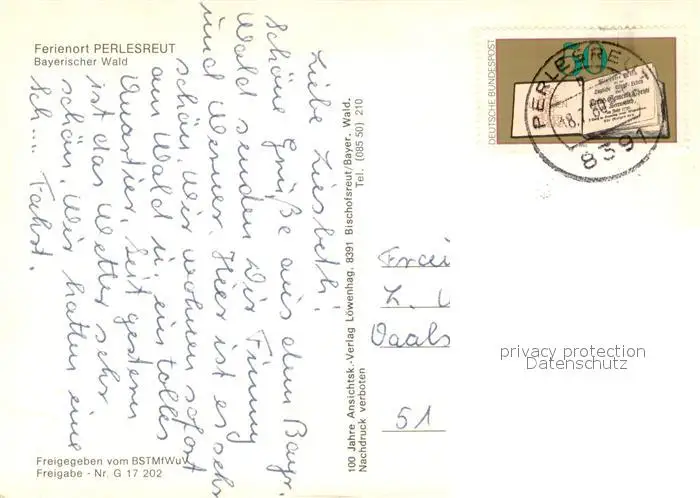 Ferienort PERLESREUT
Bayerischer Wald
Liebe Liesbeth!
Schöne Grüße aus dem Bayr.
Wald senden Dir
und Werner. Hier ist es sehr
schön. Wir wohnen schon
am Wald in ein tolles
Quartier. Seit gestern
ist das Wetter sehr
schön. Wir hatten eine
Sch.... Fahrt.
Freigegeben vom BSTMfWuV
Freigabe - Nr. G 17 202
100 Jahre Ansichtsk.-Verlag Löwenhag, 8391 Bischofsreut/Bayer. Wald.
Tel. (085 50) 210
Nachdruck verboten
DEUTSCHE BUNDESPOST
50
PERLESREUT
8391
Vaals
51
privacy protection
Datenschutz